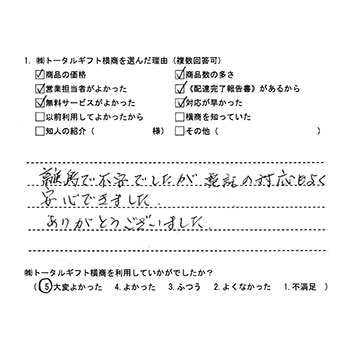 1. ㈱トータルギフト横商を選んだ理由（複数回答可）
☑商品の価格 ☑商品数の多さ
☑営業担当者がよかった ☑《配達完了報告書》があるから
☑無料サービスがよかった ☑対応が早かった
☐以前利用してよかったから ☐横商を知っていた
☐知人の紹介（ 様） ☐その他（ ）
離島で不安でしたが 電話の対応もよく
安心できました.
ありがとうございました.
㈱トータルギフト横商を利用していかがでしたか？
（ ⑤大変よかった 4.よかった 3.ふつう 2.よくなかった 1.不満足 ）